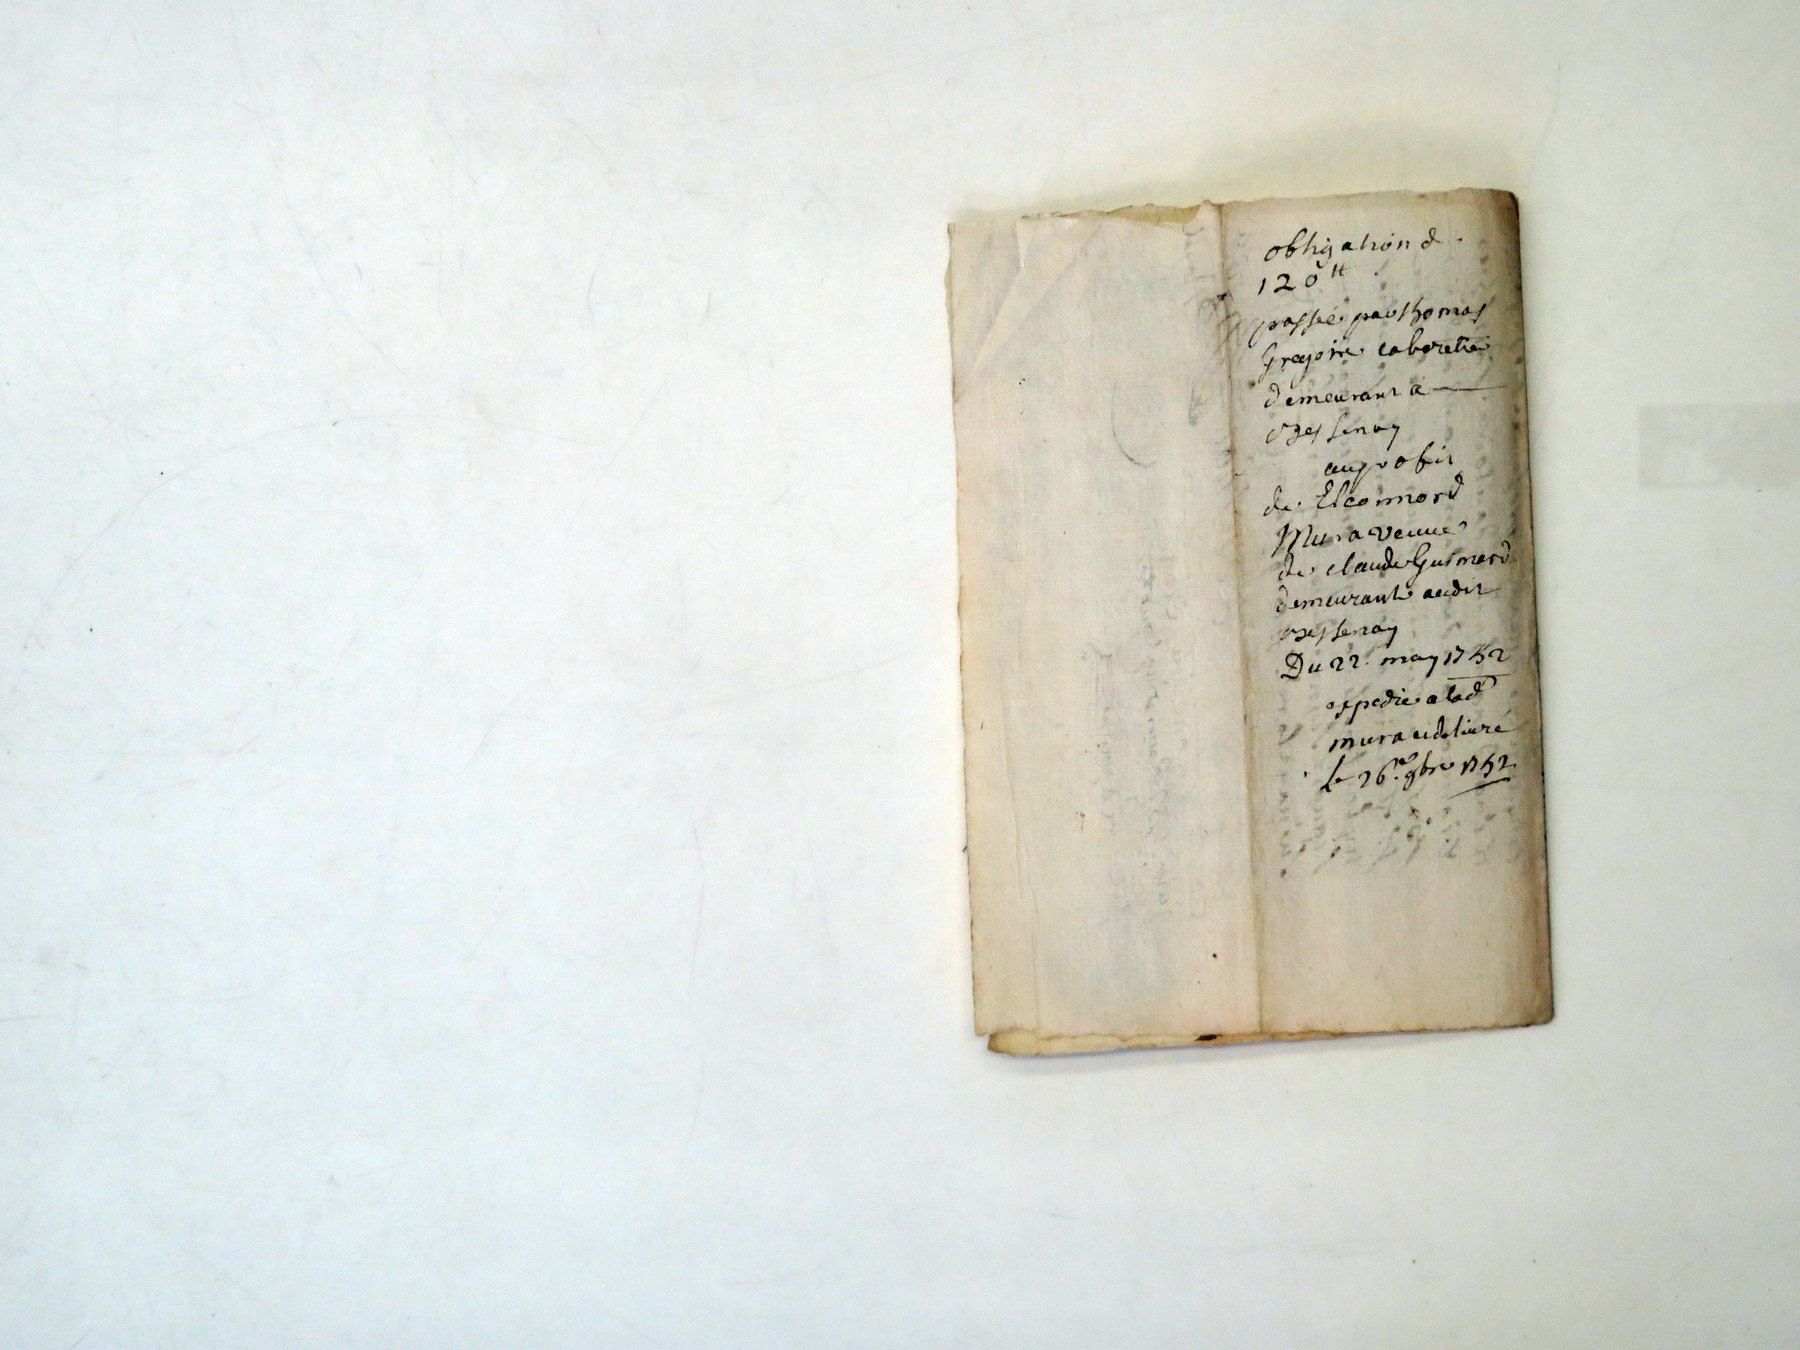 obligation de
120 tt
passée par thomas
Gregoire cabaretie
demeurant a
au profit
de Eleonnord
Mura veuve
de claude Guimard
demeurante audit
Du 22. may 1752
expedie a lad
mura et delivré
le 26.e 9bre 1752